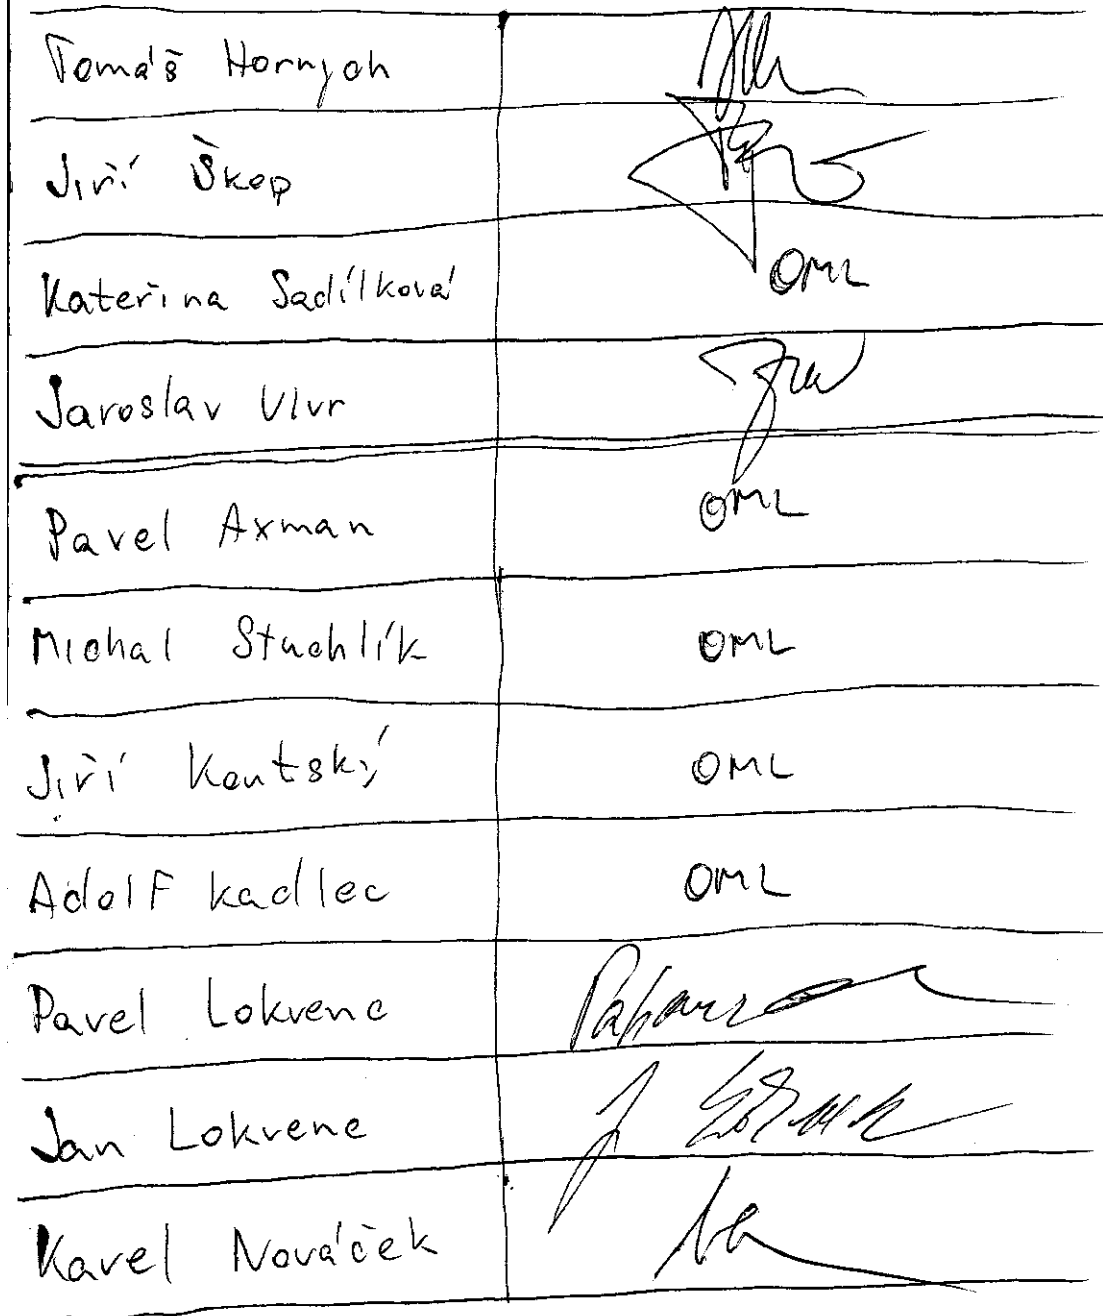 Tomáš Hornych
Jiří Škop
Kateřina Sadílková OML
Jaroslav Vlvr
Pavel Axman OML
Michal Stuchlík OML
Jiří Koutský OML
Adolf Kadlec OML
Pavel Lokvenc
Jan Lokvenc
Karel Nováček